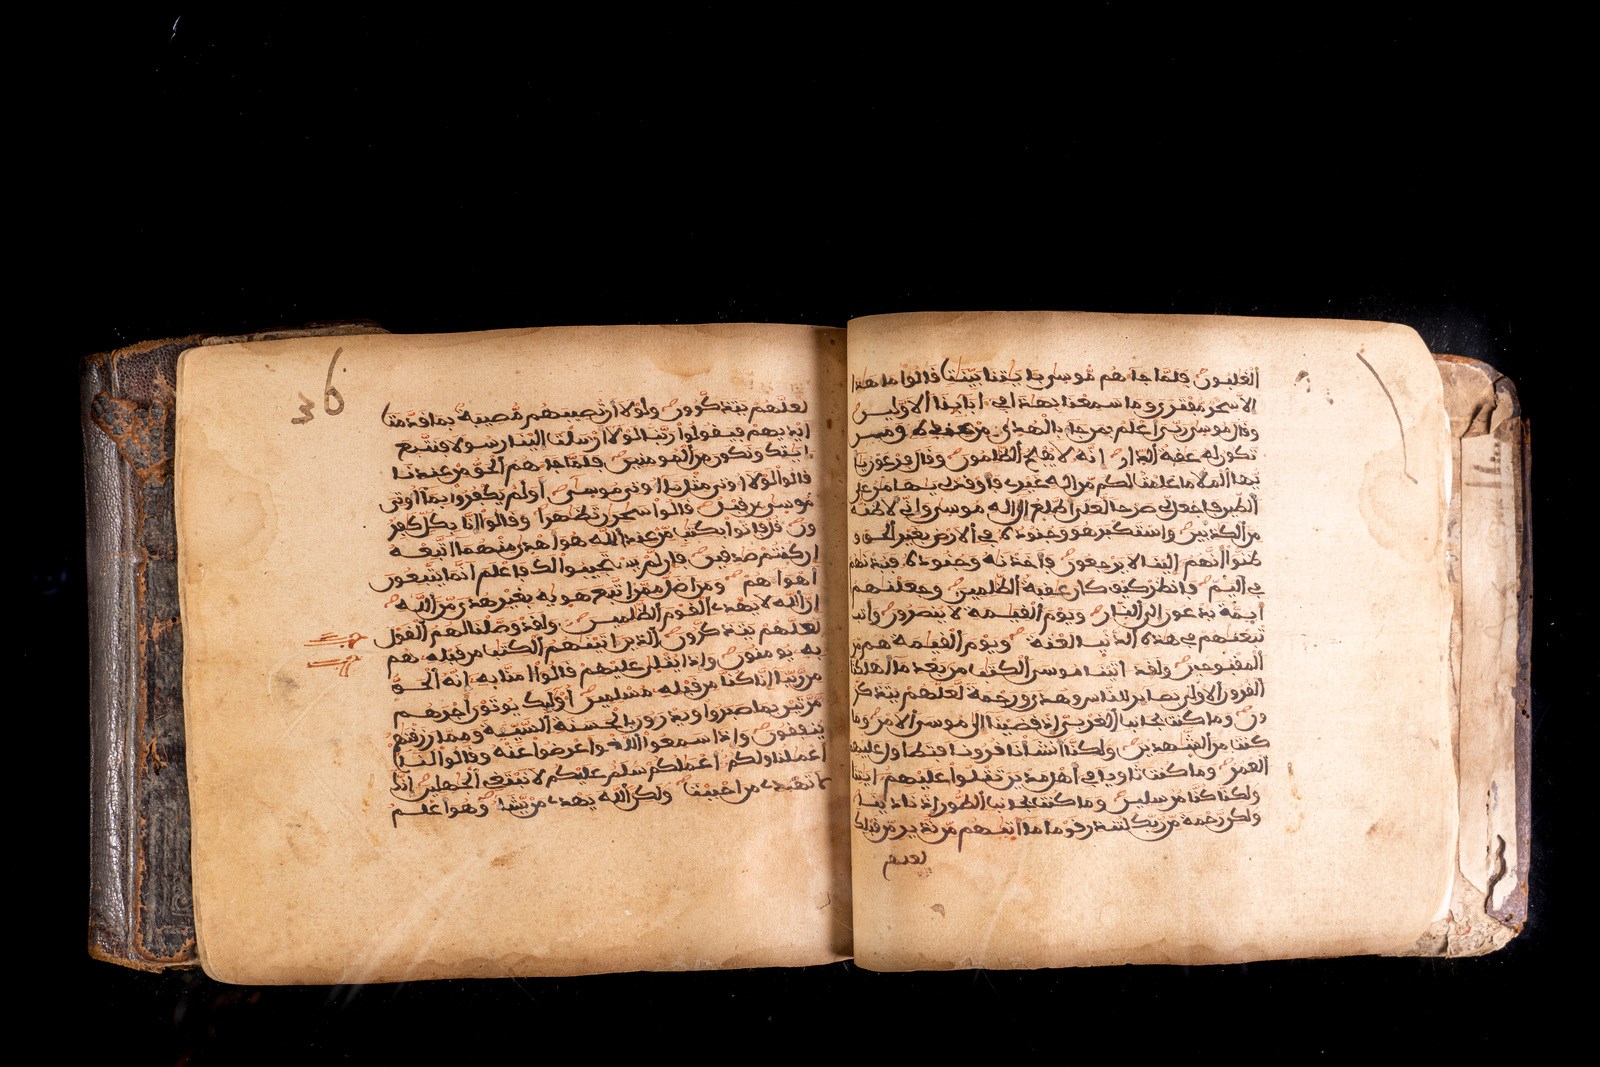 الغلبون فلما جاءهم موسى بايتنا بينت قالوا ما هذا
الا سحر مفترى وما سمعنا بهذا في ابائنا الاولين
وقال موسى ربي اعلم بمن جا بالهدى من عنده ومن
تكون له عقبة الدار انه لا يفلح الظلمون وقال فرعون يا
يها الملا ما علمت لكم من اله غيري فاوقد لي يهامن على
الطين فاجعل لي صرحا لعلي اطلع الى اله موسى واني لاظنه
من الكذبين واستكبر هو وجنوده في الارض بغير الحق و
ظنوا انهم الينا لا يرجعون فاخذنه وجنوده فنبذنهم
في اليم فانظر كيف كان عقبة الظلمين وجعلنهم
ايمة يدعون الى النار ويوم القيمة لا ينصرون وات
تبعنهم في هذه الدنيا لعنة ويوم القيمة هم من
المقبوحين ولقد اتينا موسى الكتب من بعد ما اهلكنا
القرون الاولى بصاير للناس وهدى ورحمة لعلهم يتذكر
ون وما كنت بجانب الغربي اذ قضينا الى موسى الامر وما
كنت من الشهدين ولكنا انشانا قرونا فتطاول عليهم
العمر وما كنت ثاويا في اهل مدين تتلوا عليهم ايتنا
ولكنا كنا مرسلين وما كنت بجانب الطور اذ نادينا
ولكن رحمة من ربك لتنذر قوما ما اتيهم من نذير من قبلك
لعلهم
لعلهم يتذكرون ولولا ان تصيبهم مصيبة بما قدمت
ايديهم فيقولوا ربنا لولا ارسلت الينا رسولا فنتبع
ايتك ونكون من المومنين فلما جاءهم الحق من عندنا
قالوا لولا اوتي مثل ما اوتي موسى اولم يكفروا بما اوتي
موسى من قبل قالوا سحران تظهرا وقالوا انا بكل كفر
ون قل فاتوا بكتب من عند الله هو اهدى منهما اتبعه
ان كنتم صدقين فان لم يستجيبوا لك فاعلم انما يتبعون
اهواءهم ومن اضل ممن اتبع هويه بغير هدى من الله
ان الله لا يهدي القوم الظلمين ولقد وصلنا لهم القول
لعلهم يتذكرون الذين اتينهم الكتب من قبله هم
به يومنون واذا يتلى عليهم قالوا امنا به انه الحق
من ربنا انا كنا من قبله مسلمين اوليك يوتون اجرهم
مرتين بما صبروا ويدرءون بالحسنة السيية ومما رزقنهم
ينفقون واذا سمعوا اللغو اعرضوا عنه وقالوا لنا
اعملنا ولكم اعملكم سلم عليكم لا نبتغي الجهلين انك
لا تهدي من احببت ولكن الله يهدي من يشا وهو اعلم